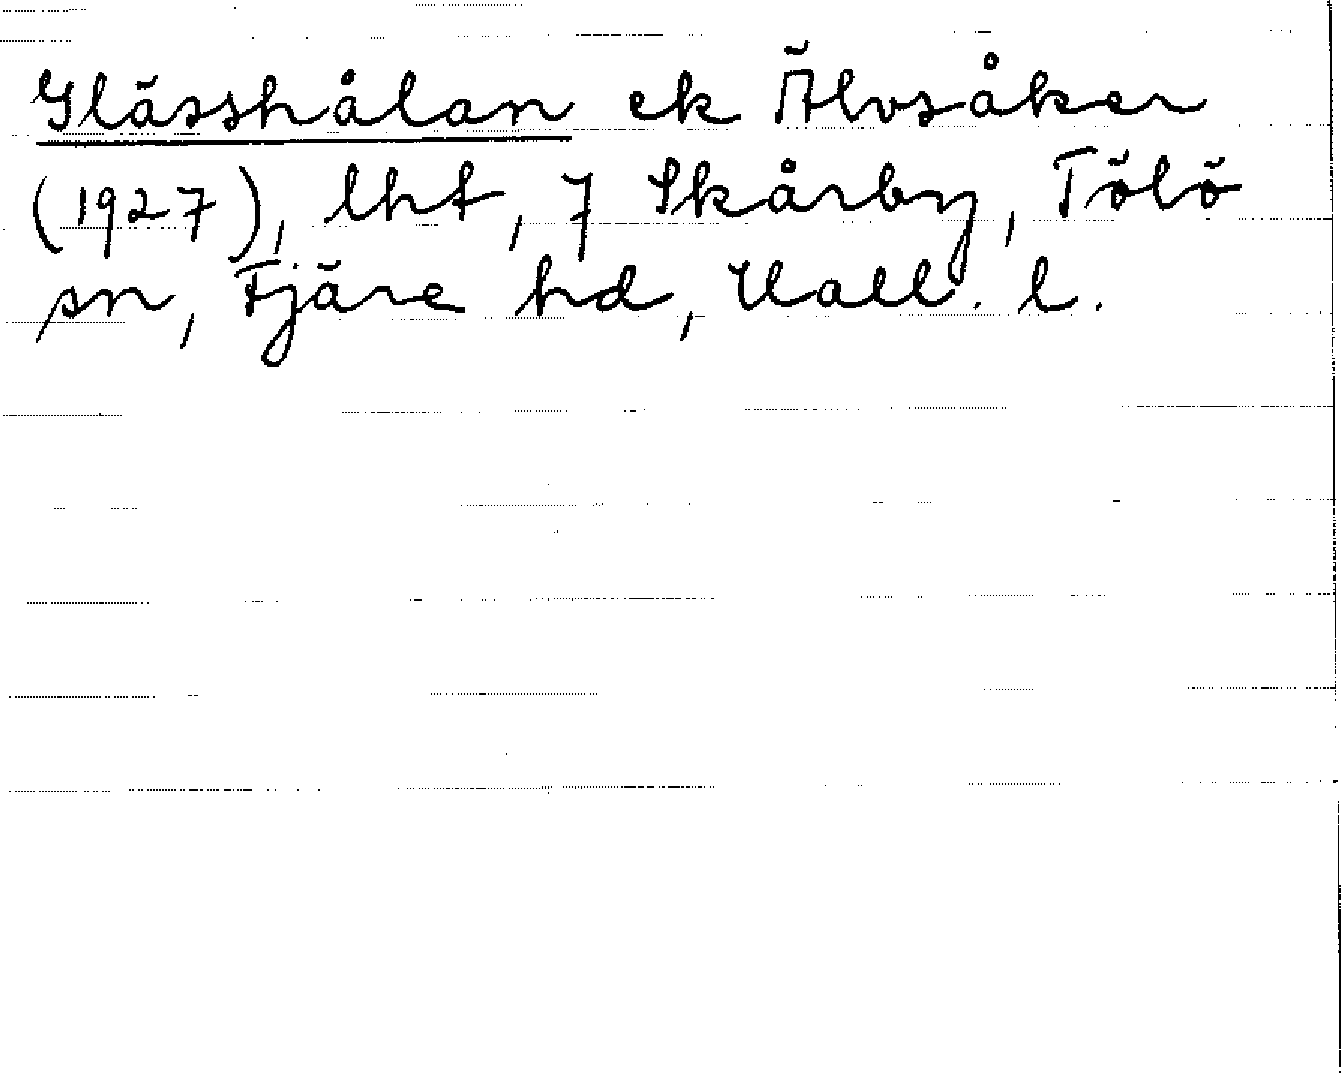 Glässhålan ek Älvsåker
(1927), lht, 7 Skårby, Tölö
sn, Fjäre hd, Hall. l.